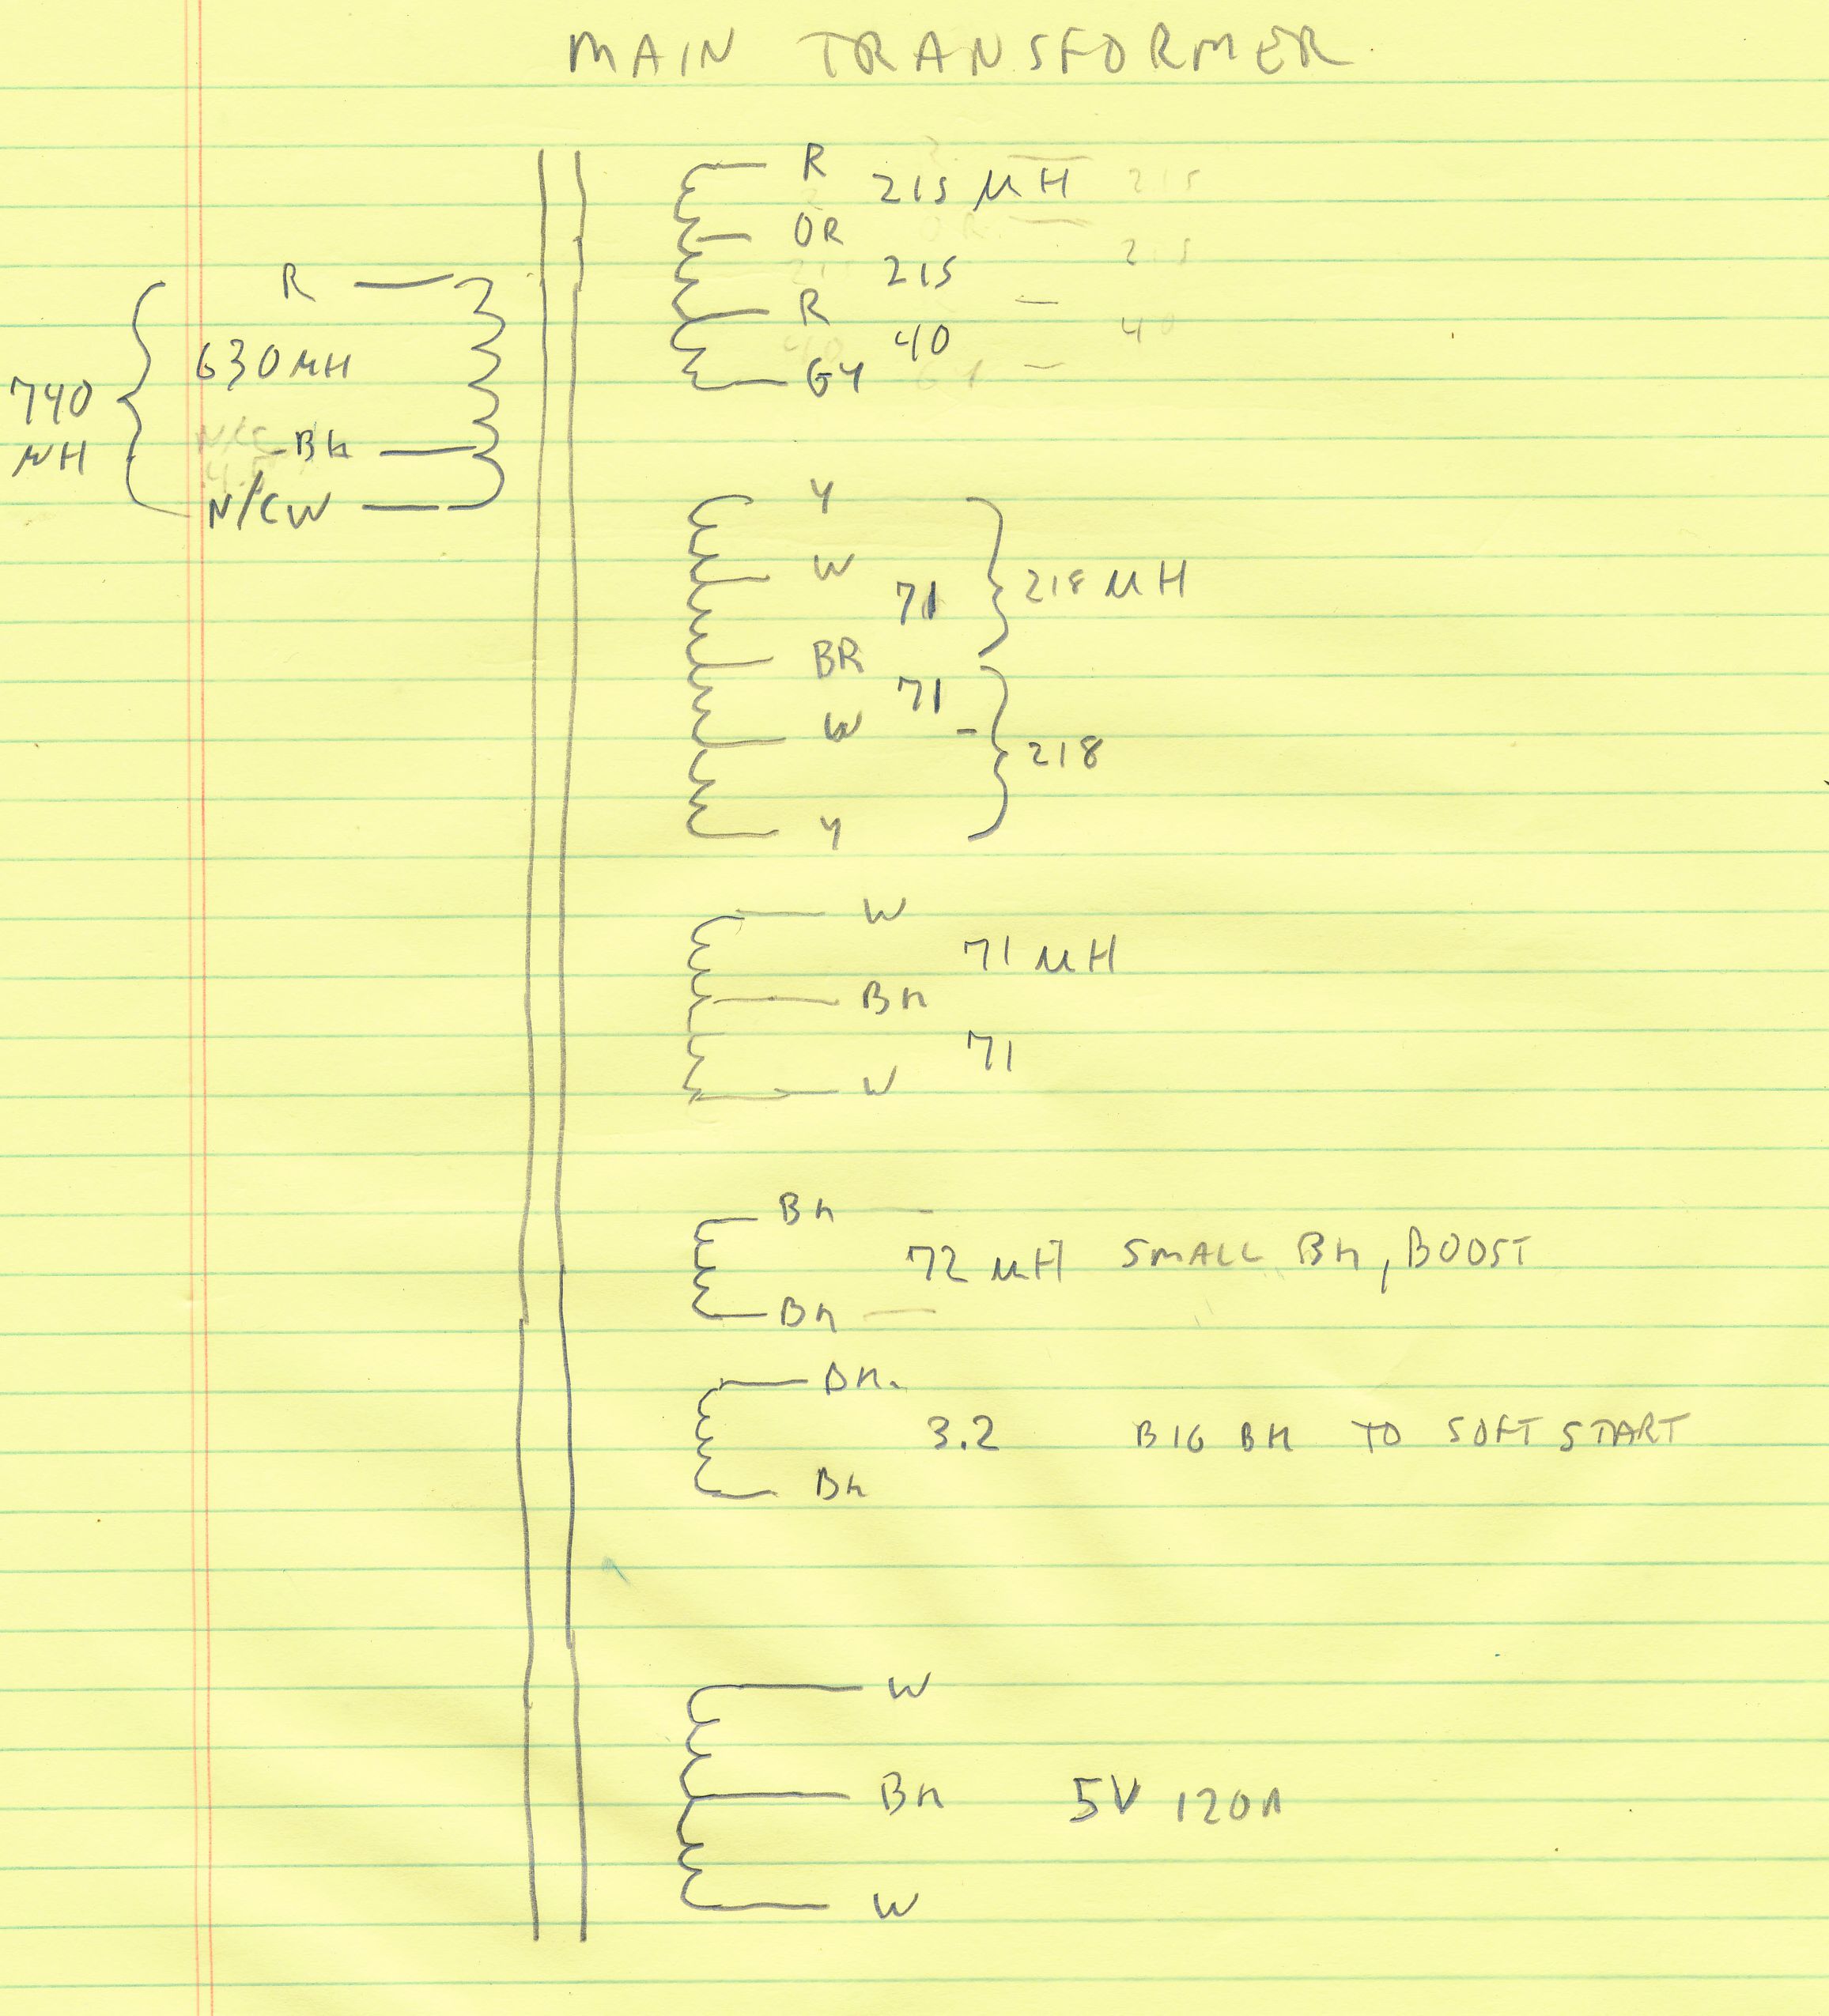 MAIN TRANSFORMER
R
630 µH
740 µH
BK
N/C W
R
215 µH
OR
215
R
40
GY
Y
W
71
218 µH
BR
71
W
218
Y
W
71 µH
BK
71
W
BK
72 µH SMALL BK, BOOST
BK
BK.
3.2 BIG BK TO SOFT START
BK
W
BK 5V 120A
W